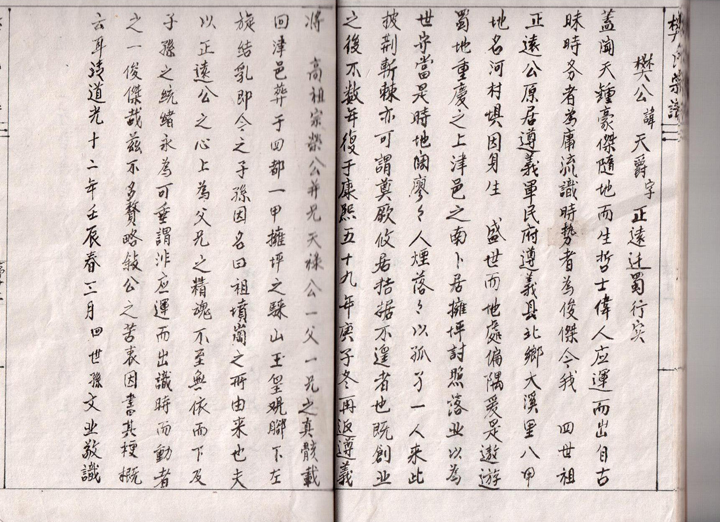 樊公諱天爵字正遠迁蜀行实
蓋聞天鍾豪傑隨地而生哲士偉人应運而出自古
昧時务者為庸流識時勢者為俊傑今我 四世祖
正遠公原居遵義軍民府遵義县北鄉大溪里八甲
地名河村惧因身生 盛世而地處偏隅爰是遨遊
蜀地重慶之上津邑之南卜居擁坪討照落业以為
世守當是時地阔廖々人煙落々以孤孑一人来此
披荆斬棘亦可謂奠厥攸居拮据不遑者也既創业
之後不数年復于康熙五十九年庚子冬再返遵義
将 高祖宗榮公并兄天禄公一父一兄之真骸載
回津邑葬于四都一甲擁坪之騄山玉皇观脚下左
旋结乳即今之子孫因名曰祖墳崗之所由来也夫
以正遠公之心上為父兄之精魂不至無依而下及
子孫之統緒永為可垂謂非应運而出識時而動者
之一俊傑哉兹不多贅略敍公之苦衷因書其梗概
云耳 道光十二年壬辰春三月四世孫文业敬識